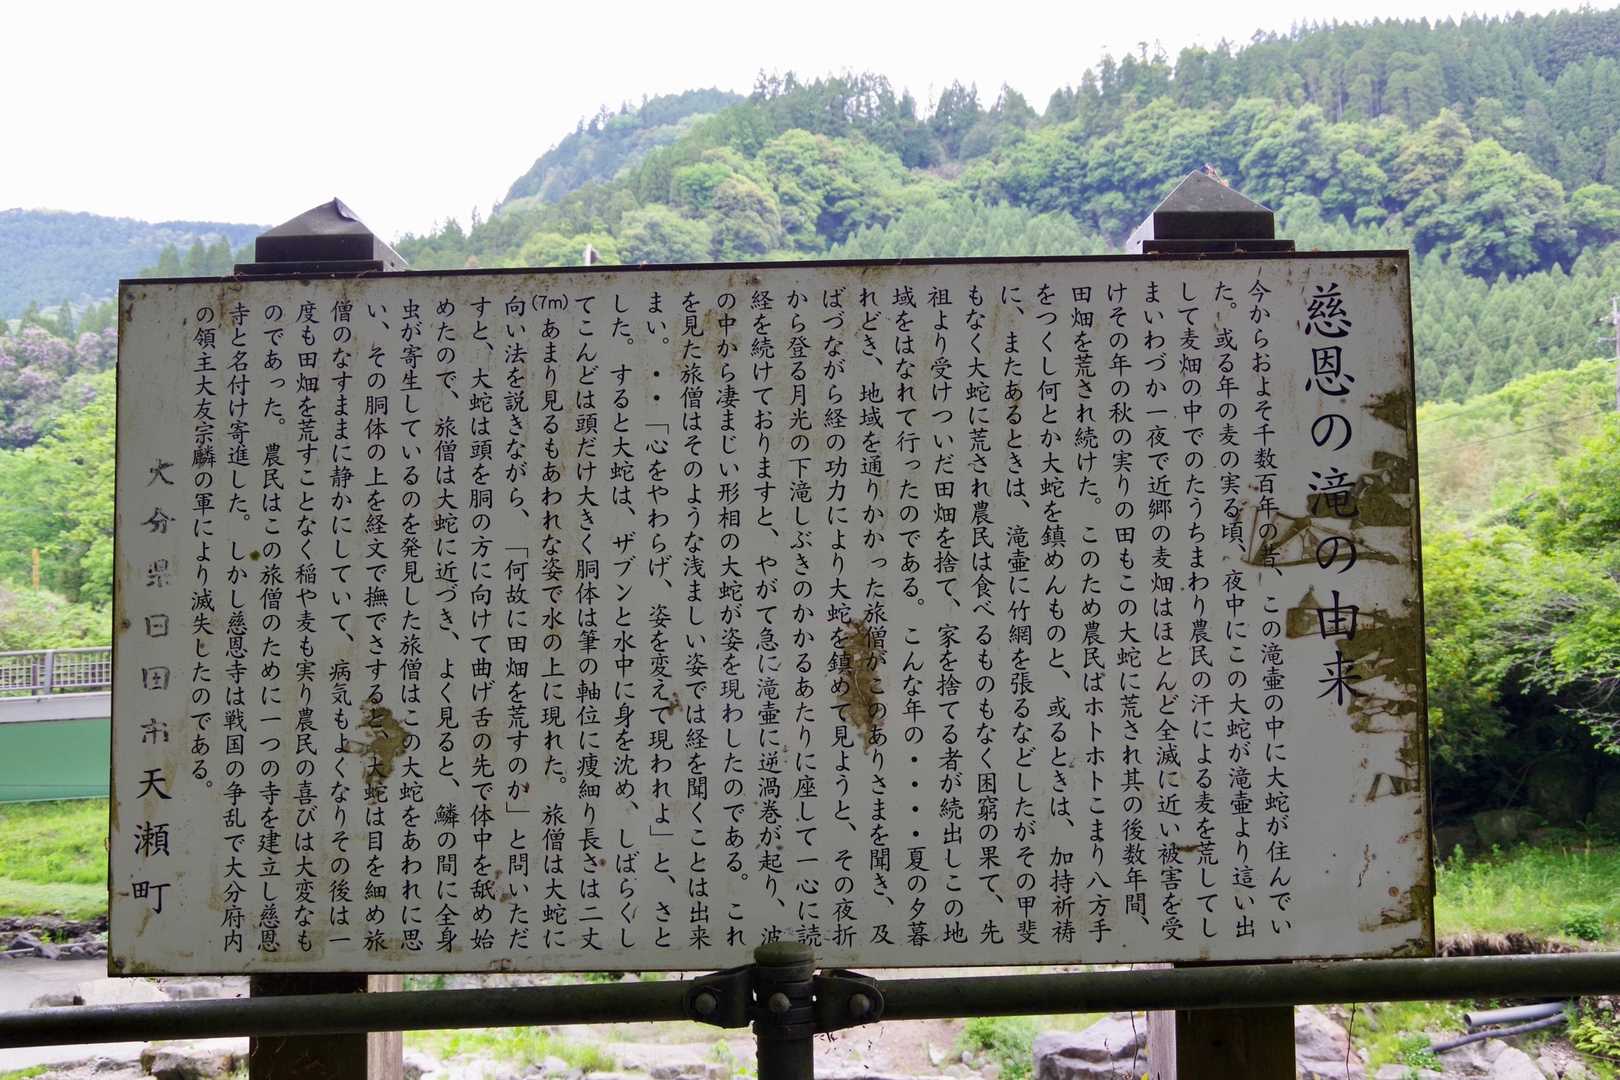 慈恩の滝の由来
今からおよそ千数百年の昔、この滝壷の中に大蛇が住んでい
た。或る年の麦の実る頃、夜中にこの大蛇が滝壷より這い出
して麦畑の中でのたうちまわり農民の汗による麦を荒してし
まいわづか一夜で近郷の麦畑はほとんど全滅に近い被害を受
けその年の秋の実りの田もこの大蛇に荒され其の後数年間、
田畑を荒され続けた。このため農民はホトホトこまり八方手
をつくし何とか大蛇を鎮めんものと、或るときは、加持祈祷
に、またあるときは、滝壷に竹網を張るなどしたがその甲斐
もなく大蛇に荒され農民は食べるものもなく困窮の果て、先
祖より受けついだ田畑を捨て、家を捨てる者が続出しこの地
域をはなれて行ったのである。こんな年の・・・・夏の夕暮
れどき、地域を通りかかった旅僧がこのありさまを聞き、及
ばづながら経の功力により大蛇を鎮めて見ようと、その夜折
から登る月光の下滝しぶきのかかるあたりに座して一心に読
経を続けておりますと、やがて急に滝壷に逆渦巻が起り、波
の中から凄まじい形相の大蛇が姿を現わしたのである。これ
を見た旅僧はそのような浅ましい姿では経を聞くことは出来
まい。・・・「心をやわらげ、姿を変えて現われよ」と、さと
した。すると大蛇は、ザブンと水中に身を沈め、しばらくし
てこんどは頭だけ大きく胴体は筆の軸位に痩細り長さは二丈
(7m)あまり見るもあわれな姿で水の上に現れた。旅僧は大蛇に
向い法を説きながら、「何故に田畑を荒すのか」と問いただ
すと、大蛇は頭を胴の方に向けて曲げ舌の先で体中を舐め始
めたので、旅僧は大蛇に近づき、よく見ると、鱗の間に全身
虫が寄生しているのを発見した旅僧はこの大蛇をあわれに思
い、その胴体の上を経文で撫でさすると、大蛇は目を細め旅
僧のなすままに静かにしていて、病気もよくなりその後は一
度も田畑を荒すことなく稲や麦も実り農民の喜びは大変なも
のであった。農民はこの旅僧のために一つの寺を建立し慈恩
寺と名付け寄進した。しかし慈恩寺は戦国の争乱で大分府内
の領主大友宗麟の軍により滅失したのである。
大分県日田市天瀬町